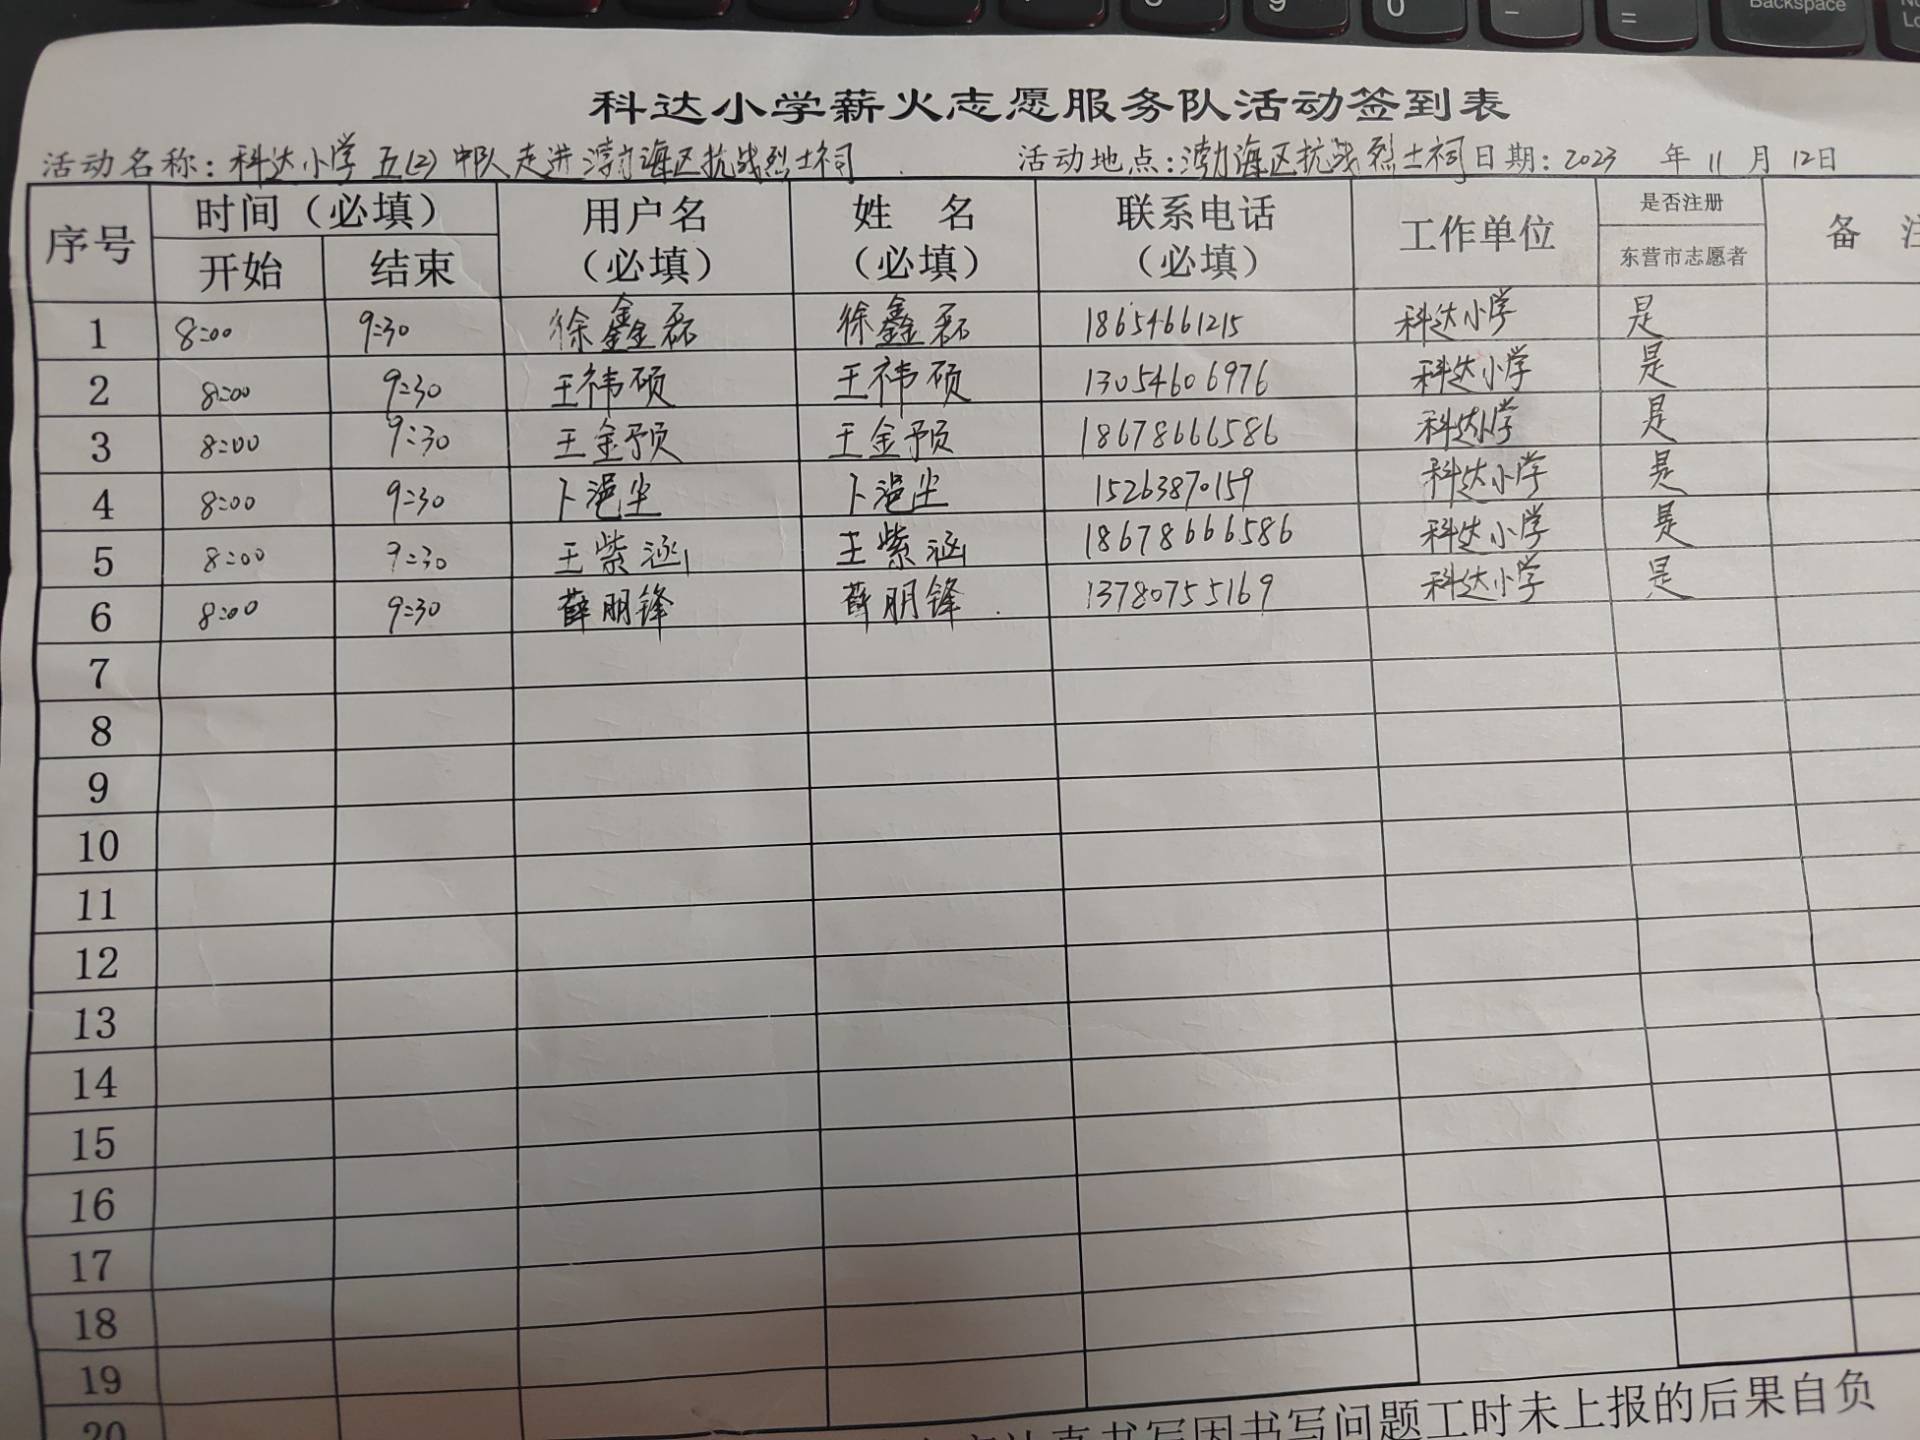 科达小学薪火志愿服务队活动签到表
活动名称：科达小学五(2)中队走进渤海区抗战烈士祠 活动地点：渤海区抗战烈士祠 日期：2023 年 11 月 12日
序号 时间（必填） 用户名（必填） 姓 名（必填） 联系电话（必填） 工作单位 是否注册 备
开始 结束 东营市志愿者
1 8:00 9:30 徐鑫磊 徐鑫磊 18654661215 科达小学 是
2 8:00 9:30 王祎硕 王祎硕 13054606976 科达小学 是
3 8:00 9:30 王金预 王金预 18678666586 科达小学 是
4 8:00 9:30 卜浥尘 卜浥尘 15263870159 科达小学 是
5 8:00 9:30 王紫涵 王紫涵 18678666586 科达小学 是
6 8:00 9:30 薛朋锋 薛朋锋 13780755169 科达小学 是
7
8
9
10
11
12
13
14
15
16
17
18
19
20
书写因书写问题工时未上报的后果自负
9
0
-
=
Backspace